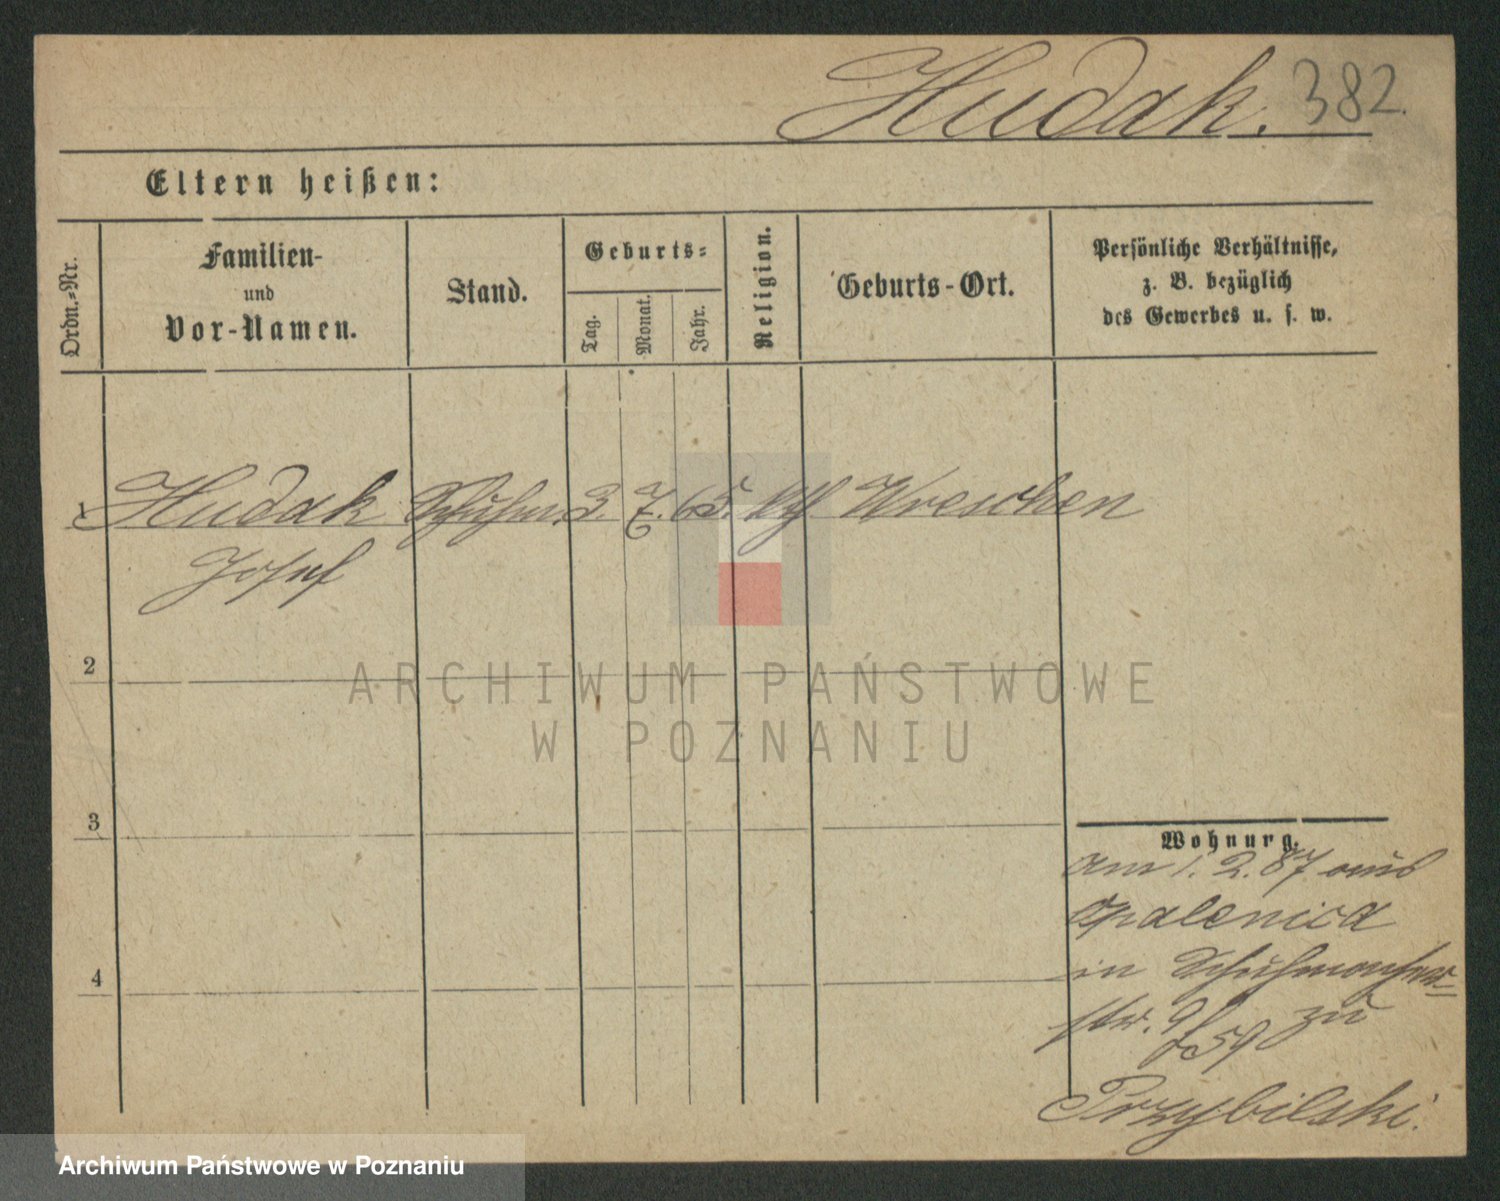 Hudak. 382.
Eltern heißen:
Ordn.-Nr.
Familien-
und
Vor-Namen.
Stand.
Geburts-
Tag.
Monat.
Jahr.
Religion.
Geburts-Ort.
Persönliche Verhältnisse,
z. B. bezüglich
des Gewerbes u. s. w.
1 Hudak Schuhm. 3. 7. 65. kth Wreschen
Josef
2
3
4
Wohnung.
am 1. 2. 87 aus
Opalenica
in Schuhmacher=
str. 9/59 zu
Przybilski.
ARCHIWUM PAŃSTWOWE
W POZNANIU
Archiwum Państwowe w Poznaniu